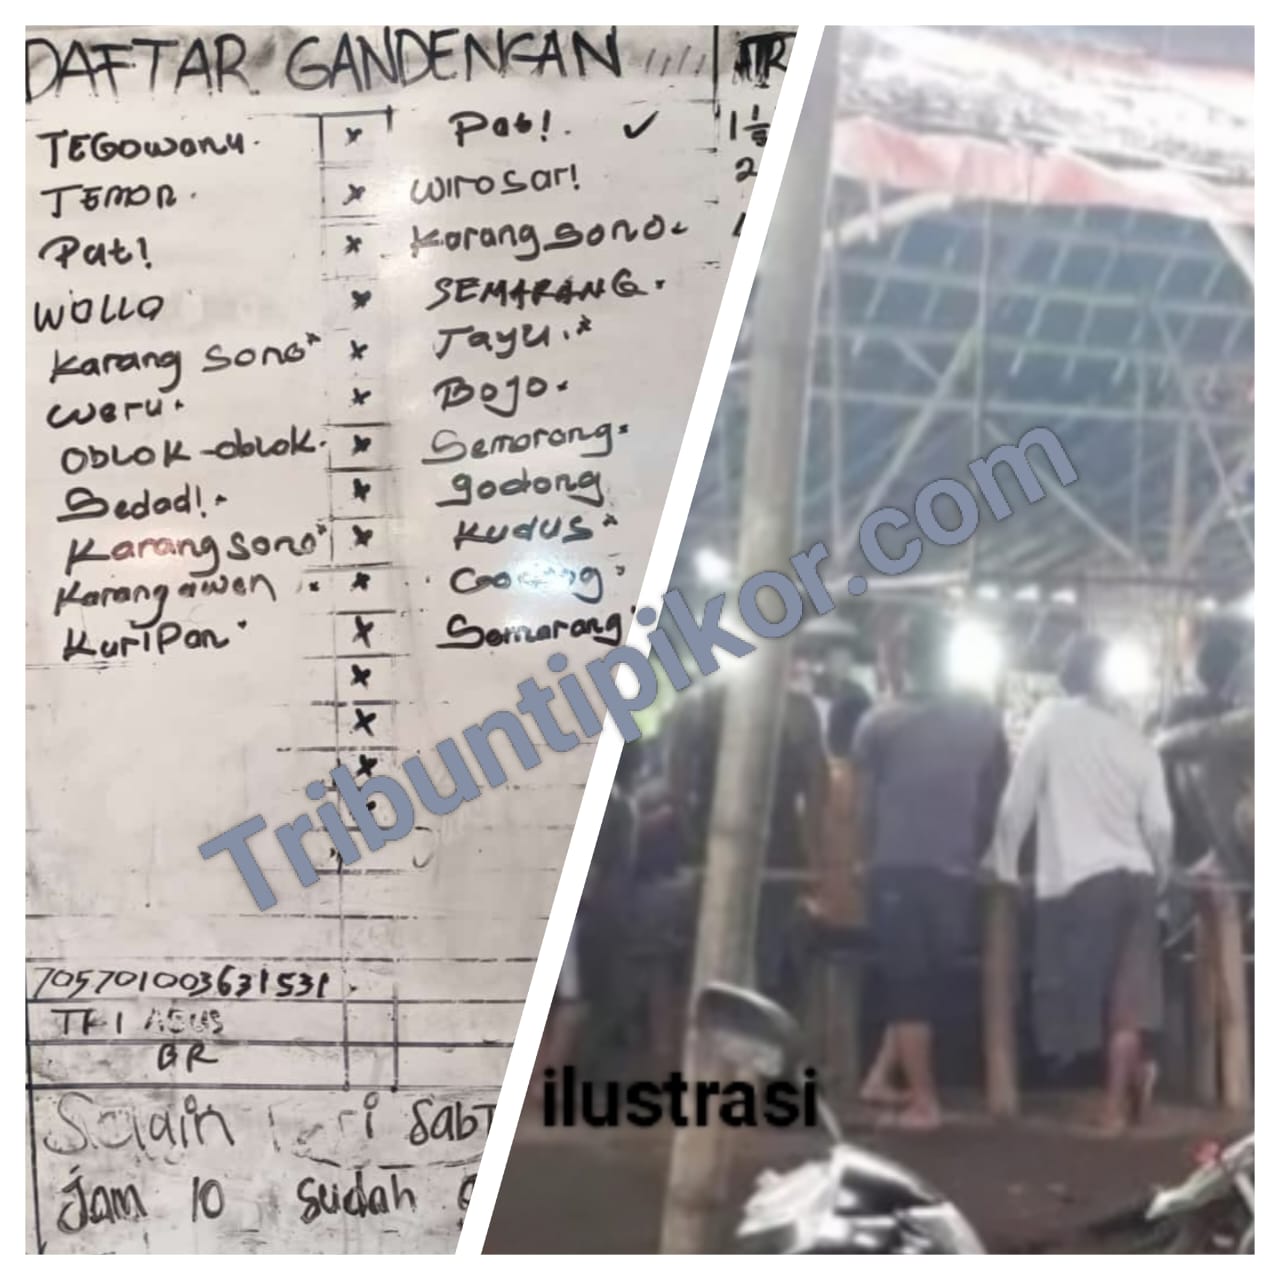 DAFTAR GANDENGAN
TEGOWANU. x Pat!. ✓ 1 1/2
TEMOR. x WIROSAR! 2
Pat! x Karang sono.
WOLLO x SEMARANG.
Karang sono x Tayu.
Weru. x Bojo.
OBLOK-oblok. x Semarang
Sedad!. x godong
Karang sono x Kudus
Karang awen x
KurIPan x Semarang
x
x
x
705701003631531
TF1 AGUS
BR
Selain hari SABT
jam 10 sudah
Tribuntipikor.com
ilustrasi